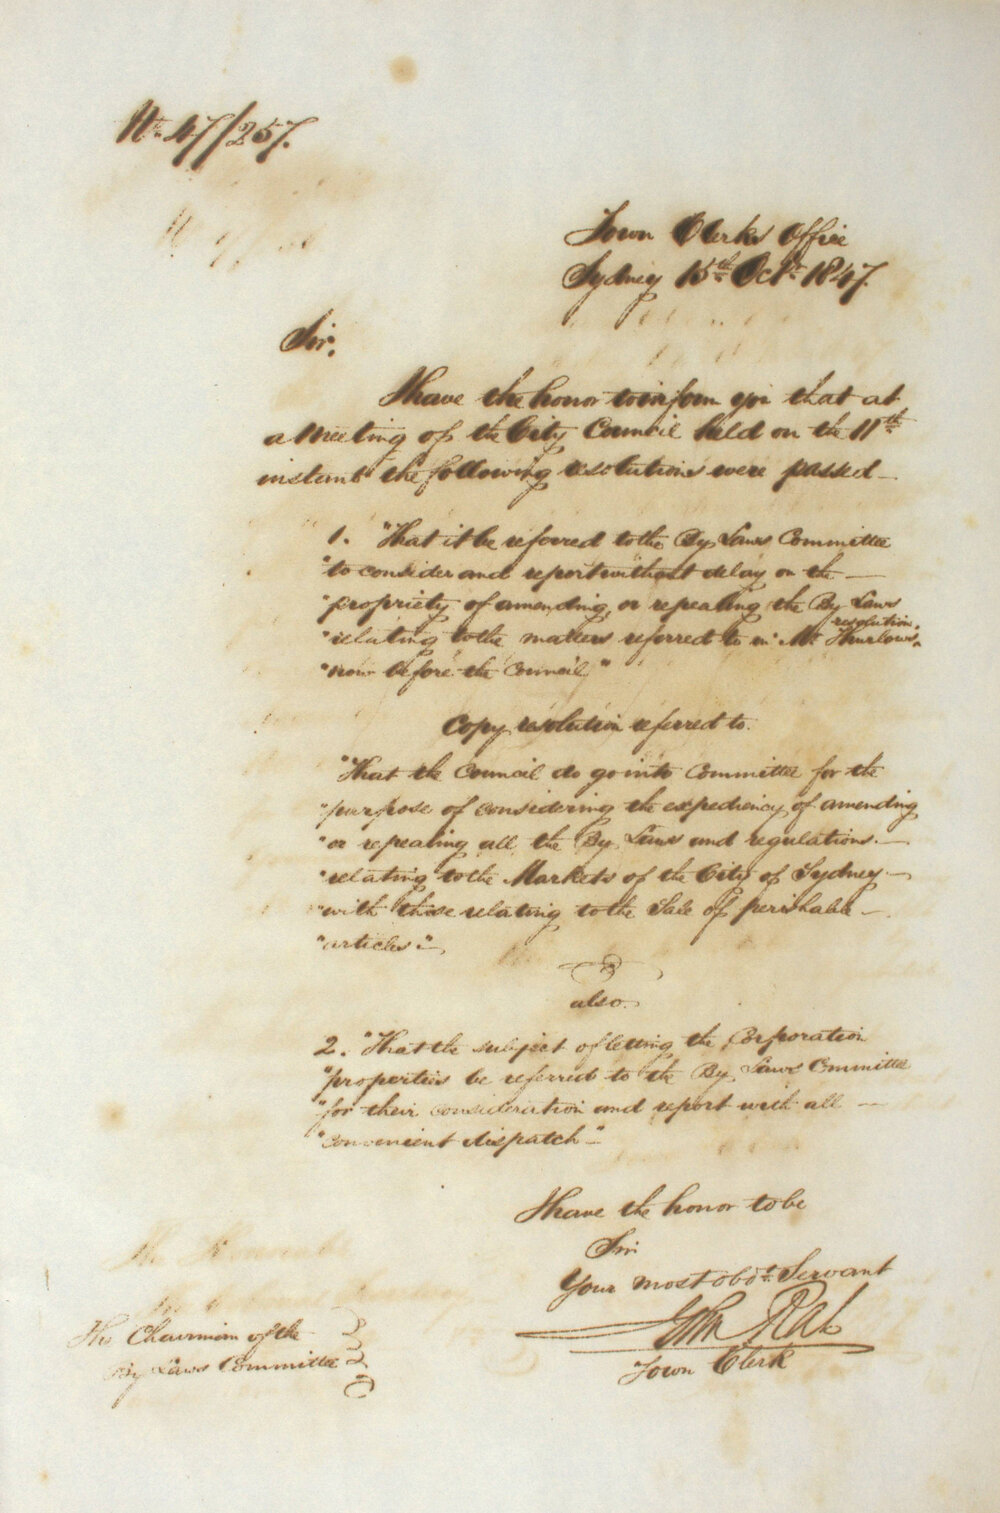 No. 47/257.
Town Clerks Office
Sydney 15th Octr. 1847.
Sir,
I have the honor to inform you that at
a Meeting of the City Council held on the 11th
instant the following resolutions were passed
1. "That it be referred to the By Laws Committee
"to consider and report without delay on the
"propriety of amending, or repealing the By Laws
"relating to the matters referred to in Mr. Thurlows resolution
"now before the Council"
Copy resolution referred to.
"That the Council do go into Committee for the
"purpose of considering the expediency of amending
"or repealing all the By Laws and regulations
"relating to the Markets of the City of Sydney
"with those relating to the Sale of perishable
"articles"
also
2. "That the subject of letting the Corporation
"properties be referred to the By Laws Committee
"for their consideration and report with all
"convenient dispatch"
I have the honor to be
Sir
Your most obdt. Servant
John Rae
Town Clerk
The Chairman of the
By Laws Committee